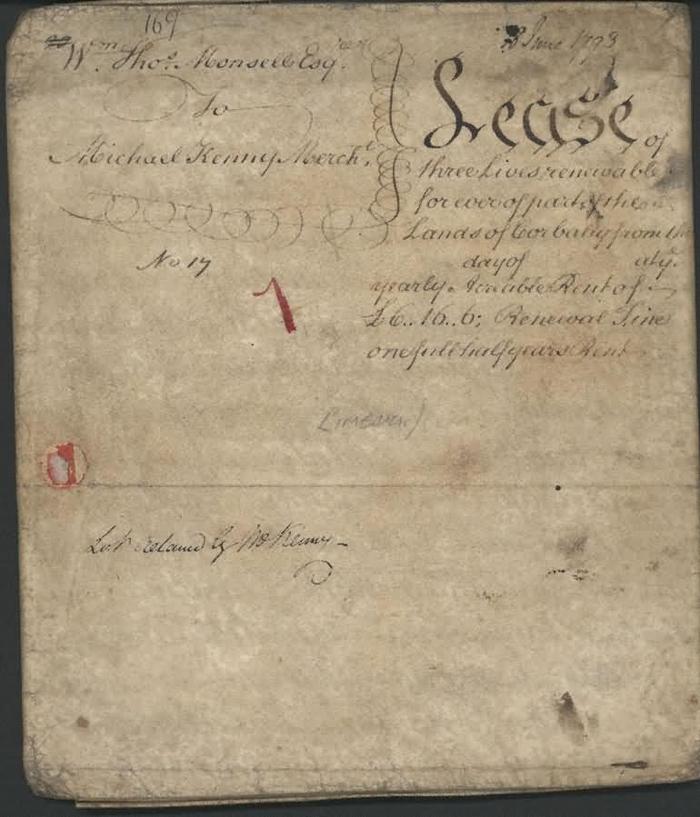 169
Wm. Thos. Monsell Esq.
To
Michael Kenny Mercht.
No 17
June 1793
Lease of
three Lives renewable
for ever of part of the
Lands of Corbally from the
day of at ye.
yearly Rent of
£6..16..6; Renewal Fine
one full half years Rent
(Limerick)
by Mr Kenny